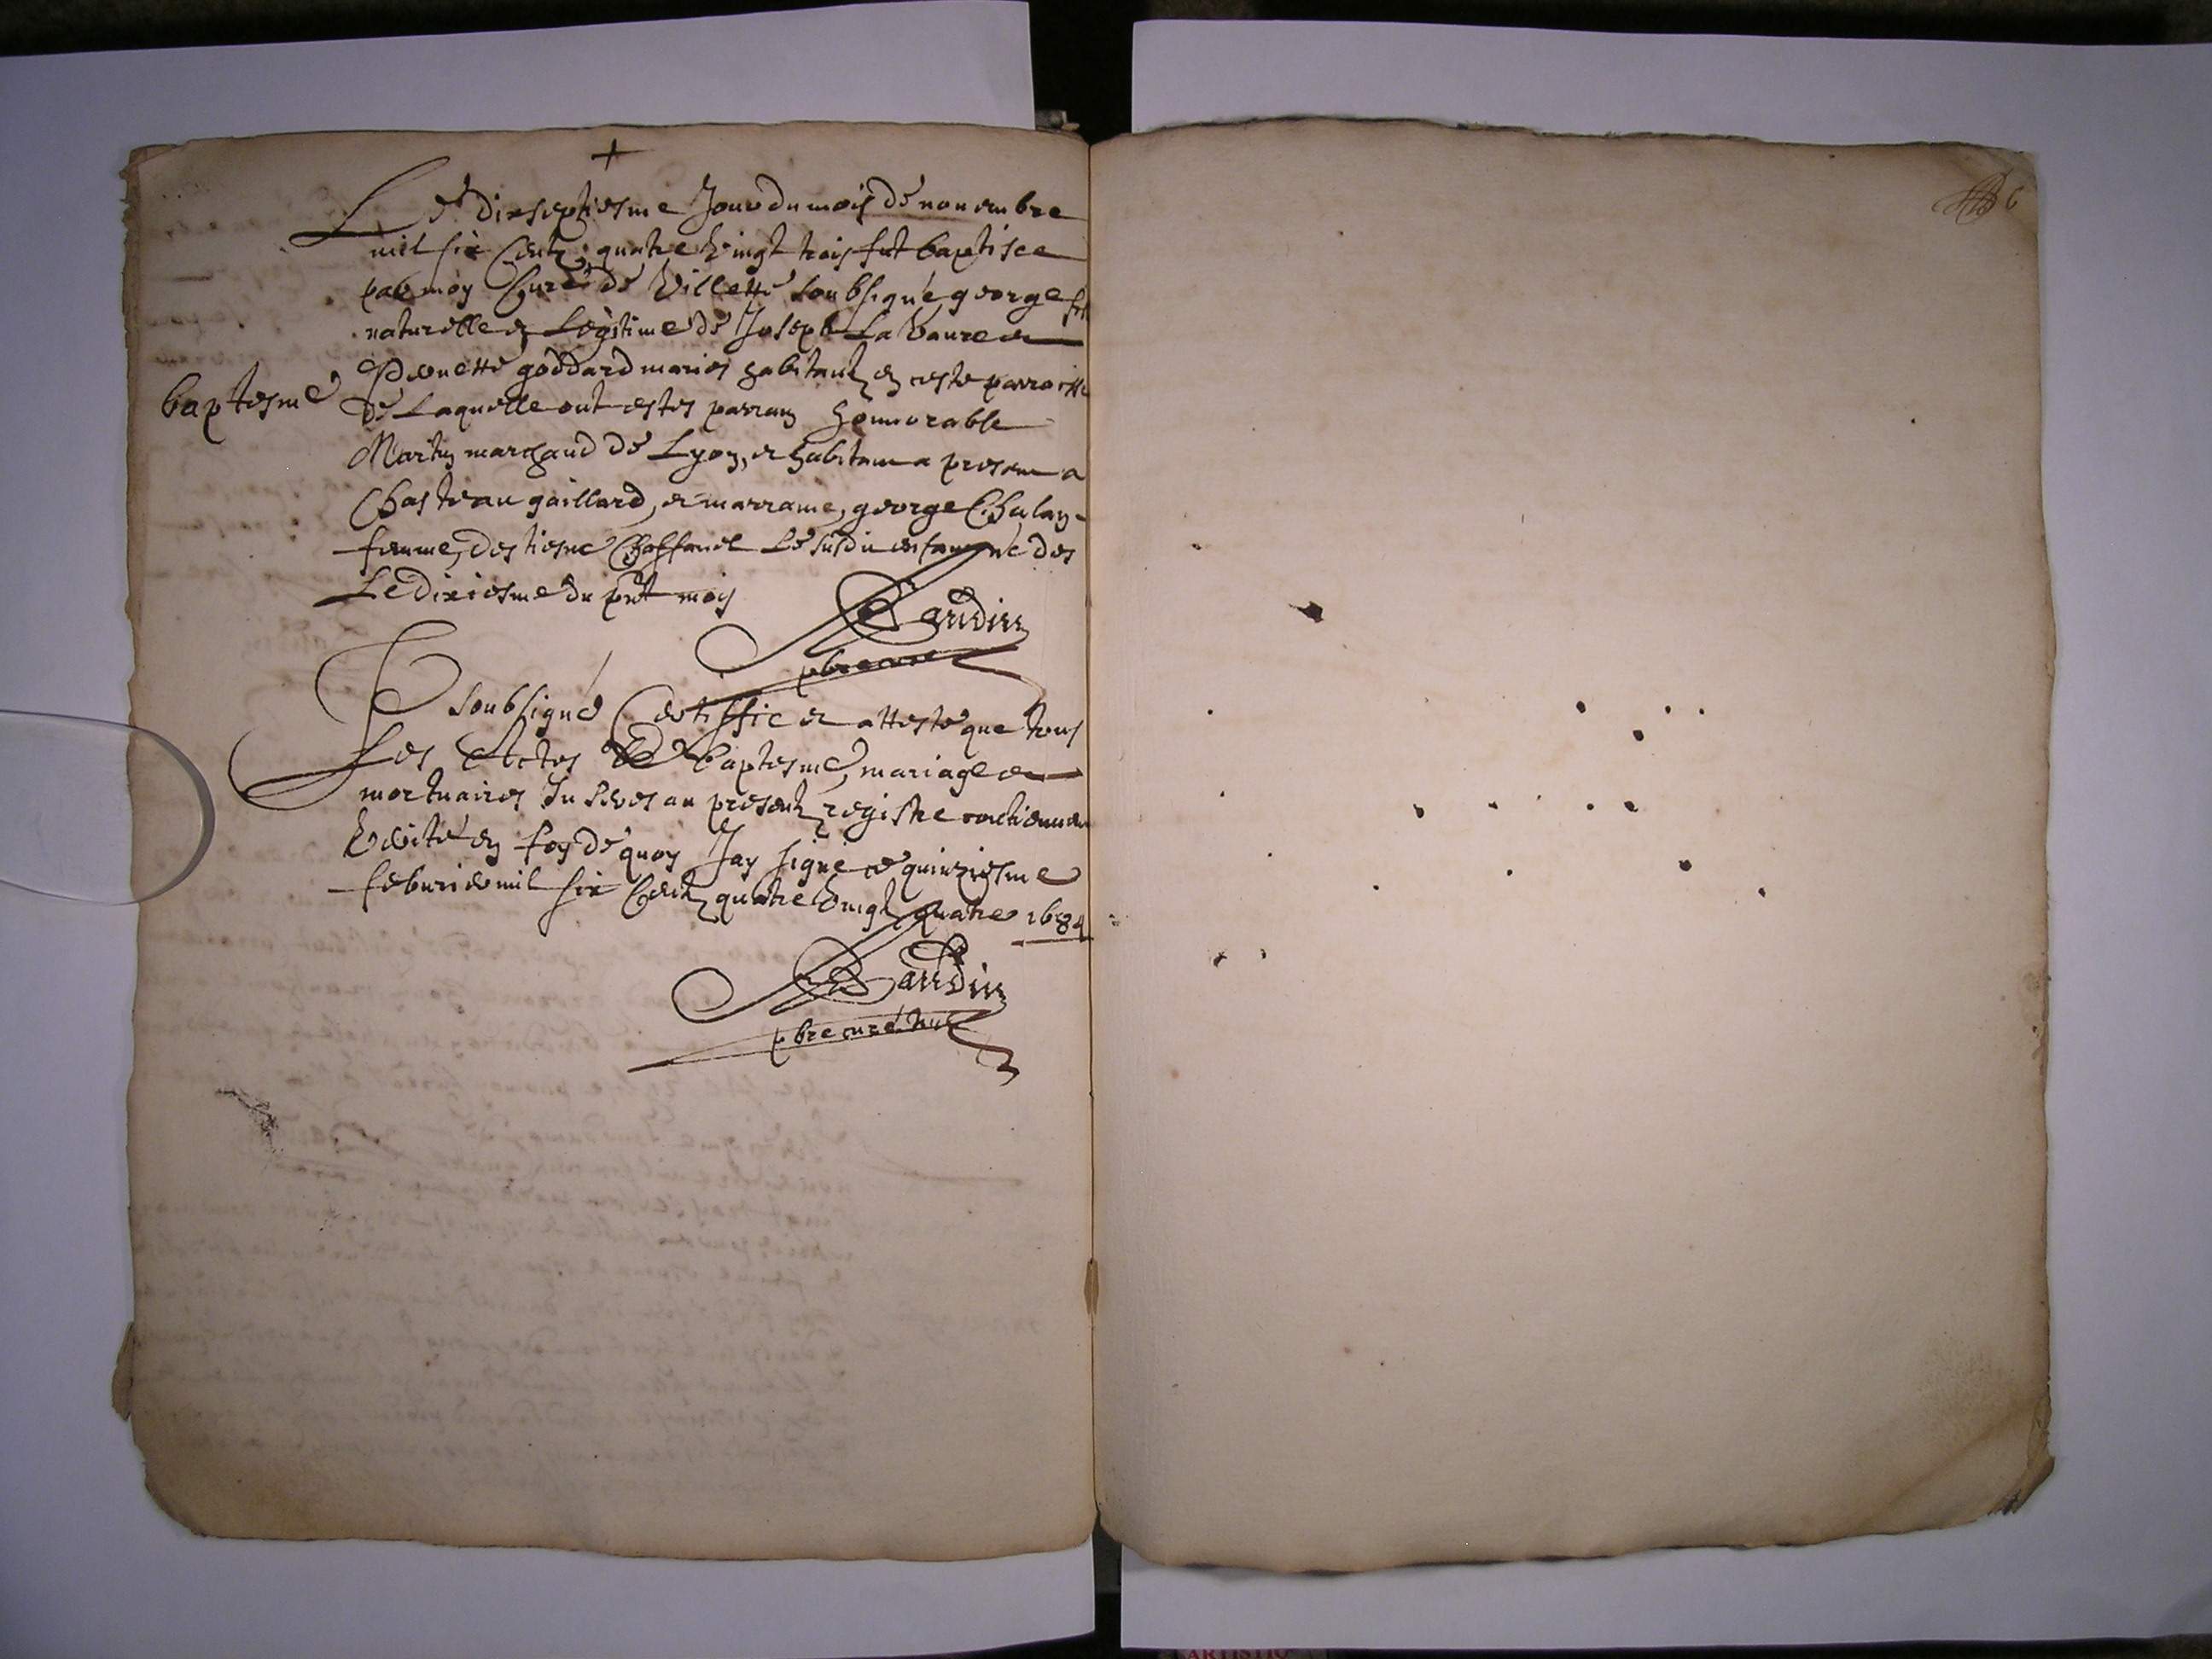 +
Le dixseptiesme Jour du mois de novembre
mil six Centz quatre vingt trois fut baptisee
par moy Curé de Villette soubsigné george fil
naturelle et Legitime de Joseph La Vaure et
goddard mariés habitantz en ceste parroisse
baptesme
de Laquelle ont estes parrain honnorable
Martin marchand de Lyon, et habitant a present a
Chasteau gaillard, et marraine, george
femme, d'estiene Le susdit enfant né des
Le dixiesme du pnt mois
Jandin
pbre curé
Je soubsigné Certiffie et atteste que tous
Les Actes de baptesme, mariage et
mortuaires Inserés au present registre contiennent
Verité en foy de quoy Jay signé ce quinziesme
febvrier mil six Centz quatre vingtz quatre 1684
Jandin
pbre curé
6
ARTISTIC